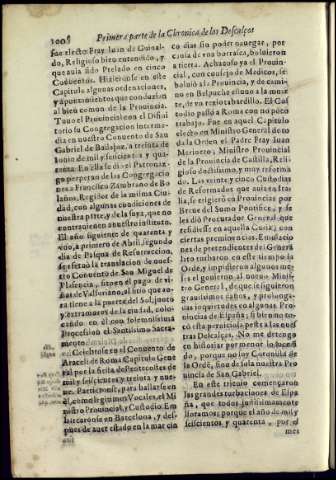 1008
Primera parte de la Chronica de los Descalços
fue electo Fray Iuan de Guinal-
do, Religioso bien entendido, y
que auia sido Prelado en cinco
Conuentos. Hizieronse en este
Capitulo algunas ordenaciones,
y apuntamientos que conduzian
al bien comun de la Prouincia.
Tuuo el Prouincial con el Difini
torio su Congregacion interme-
dia en nuestro Conuento de San
Gabriel de Badajoz, a treinta de
Iunio de mil y seiscientos y qua-
renta. En ella se dio el Patronaz-
go perpetuo de la Congregacion
a Francisco Zambrano de Bo
laños, Regidor de la misma Ciu-
dad, con algunas condiciones de
nuestra parte, y de la suya, que no
contradizen a nuestro instituto.
El año siguiente de quarenta y
vno, a primero de Abril, segundo
dia de Pasqua de Resurreccion,
se efetuò la translacion de nues-
tro Conuento de San Miguel de
Plasencia, sito en el pago
de Valloriano, al sitio que aora
tiene a la parte del Sol, junto
y extramuros de la ciudad, colo-
cando en el con solemnissima
Procession el Santissimo Sacra-
mento.
Celebròse en el Conuento de
Araceli de Roma Capitulo Gene
ral por la fiesta de Pentecostes de
mil y seiscientos y treinta y nue-
ue. Partieronse, para hallarse en
el, como legitimos Vocales, el Mi
nistro Prouincial, y Custodio. Em
barcaronse en Barcelona, y des-
pues de auer estado en la mar cin
co dias sin poder nauegar, por
causa de vna borrasca, boluieron
a tierra. Achacoso ya el Prouin-
cial, con consejo de Medicos, se
boluiò a la Prouincia, y camino à
en Belpuche a vna de la muer-
te, de vn recio tabardillo. El Cus
todio passò a Roma con no poco
trabajo. Fue en aquel Capitulo
electo en Ministro General de to-
da la Orden el Padre Fray Iuan
Merinero, Ministro Prouincial
de la Prouincia de Castilla, Reli-
gioso doctissimo, y muy reforma
do. Las veinte y cinco Custodias
de Reformados que auia en Ita-
lia, se erigieron en Prouincias por
Breue del Sumo Pontifice, y se
les diò Procurador General que
residiesse en aquella Curia, con
ciertas preminencias. Emulacio
nes de pretendientes del Genera
lato turbaron en este tiempo la
Orde, y impidieron algunos me-
ses el gouierno al nueuo Minis-
tro General, de que se siguieron
grauissimos daños, y prolonga-
das inquietudes en algunas Pro-
uincias de España; si bien no to-
cò esta partiçula peste a las nues
tras Descalças. No me detengo
en historiar por menor lo suce-
dido, porque no soy Coronista de
la Ordē, sino de sola nuestra Pro
uincia de San Gabriel.
En este trienio començaron
las grandes turbaciones de Espa
ña, que todos justissimamente
lloramos; porque el año de mil y
seiscientos y quarenta, por el
mes